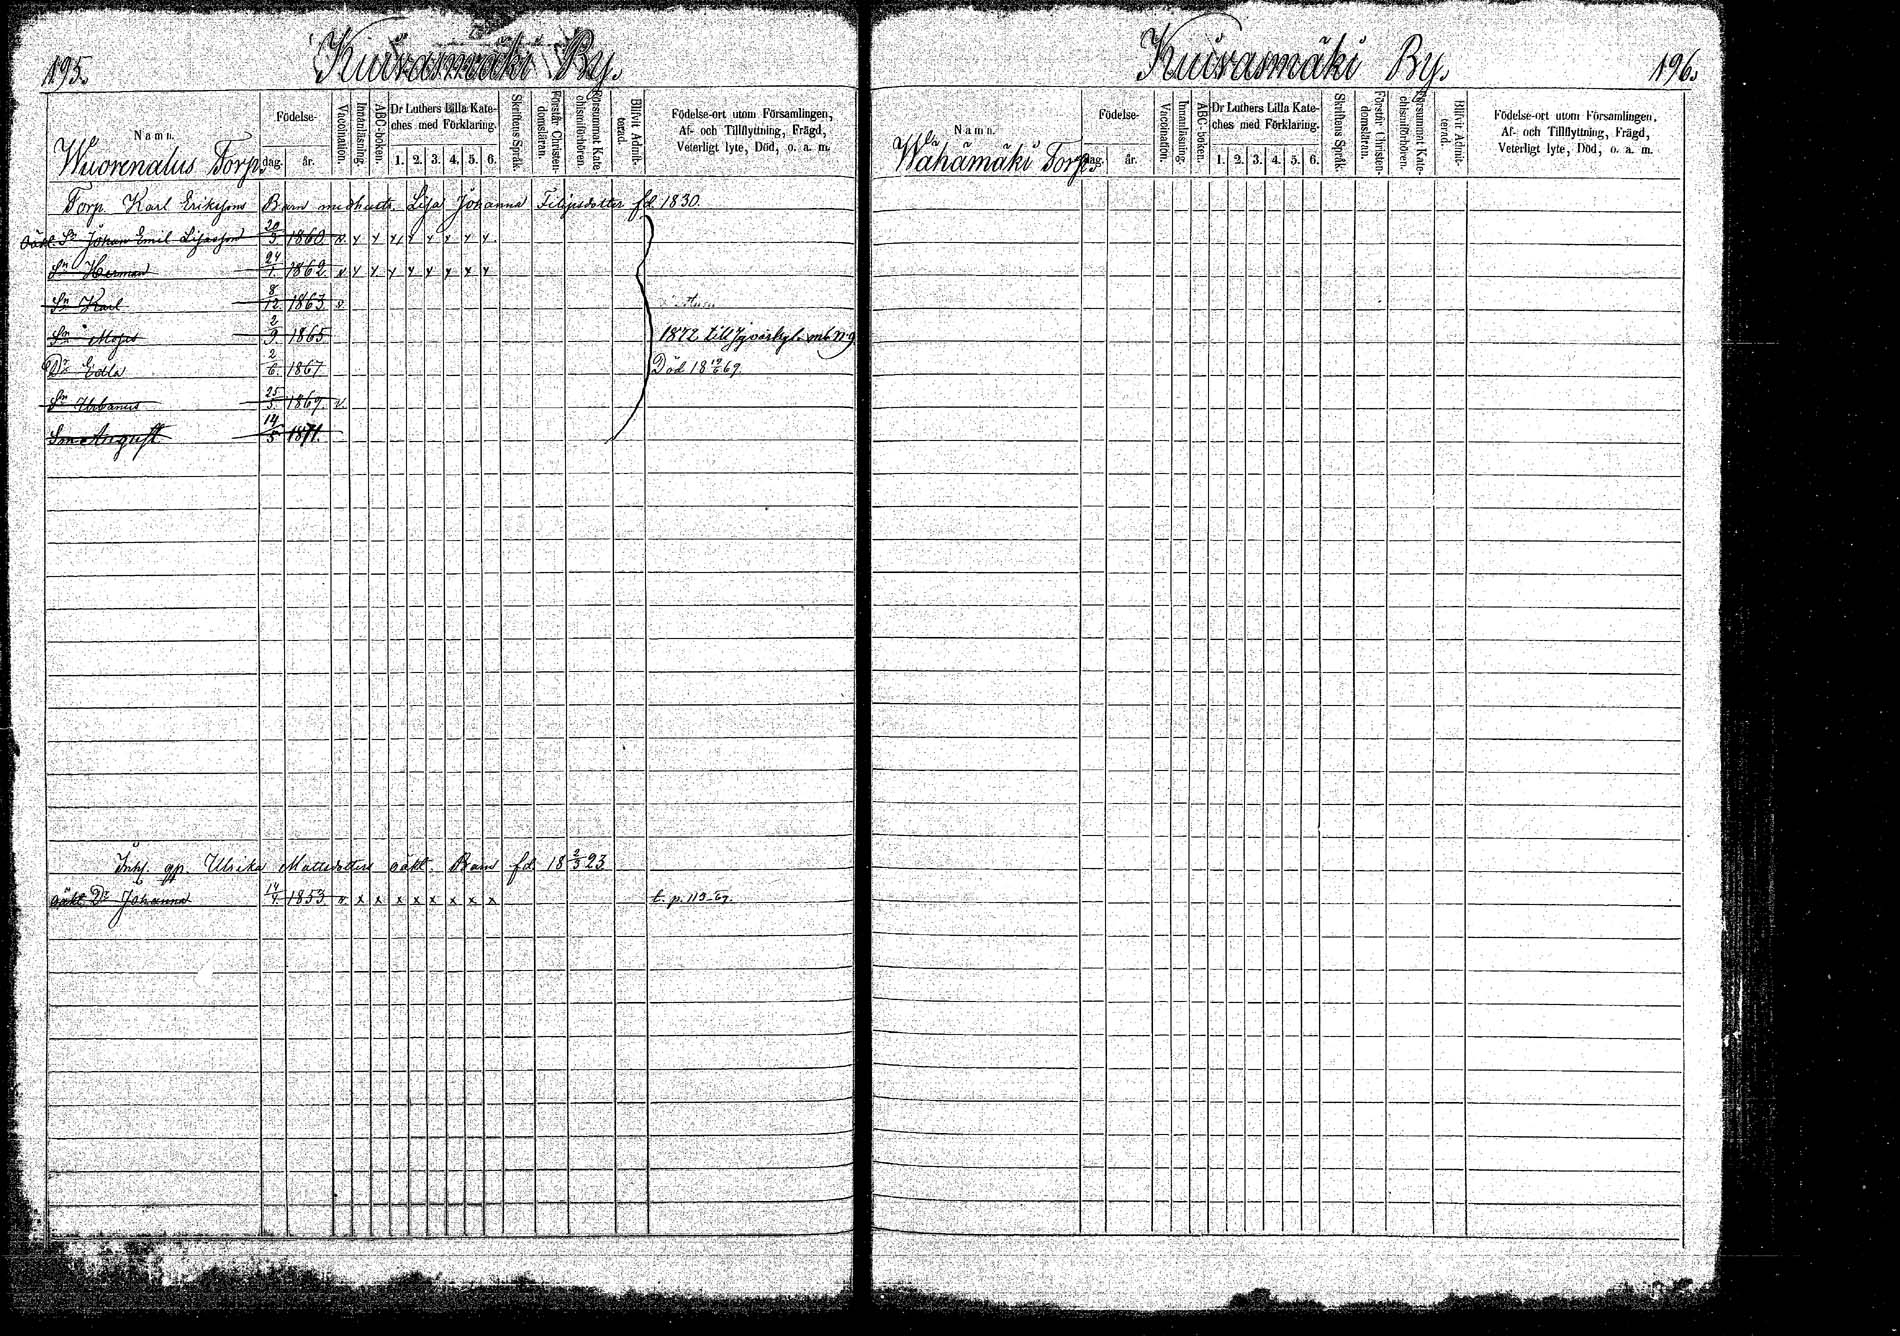 195.
Kuivasmäki By.
Namn.
Wuorenalus Torp.
Födelse-
dag. år.
Vaccination.
Innanläsning.
ABC-boken.
Dr Luthers Lilla Kate-
ches med Förklaring.
1. 2. 3. 4. 5. 6.
Skriftens Språk.
Förstår Christen-
domsläran.
Försummat Kate-
chismiförhören.
Blifvit Admit-
terad.
Födelse-ort utom Församlingen,
Af- och Tillflyttning, Frägd,
Veterligt lyte, Död, o. a. m.
Torp. Karl Erikssons Barn med hust. Lisa Johanna Filipsdotter fd. 1830.
oäkt. Sn Johan Emil Lisasson 20/3 1860 v. y y y y y y y y
Sn Herman 24/1 1862 v y y y y y y y y
Sn Karl 8/12 1863 v.
Sn Moses 2/9 1865 1872 till Jyväskyl. mb N 9
Dr Edla 2/6 1867 Död 18 19/6 69
Sn Urbanus 25/3 1869 v.
Sn August 14/5 1871.
Inh. gp. Ulrika Mattsdotters oäkt. Barn fd. 18 2/3 23
oäkt Dr Johanna 14/4 1853 v. x x x x x x x x t. p. 113-69.
Kuivasmäki By.
196.
Namn.
Wähämäki Torp.
Födelse-
dag. år.
Vaccination.
Innanläsning.
ABC-boken.
Dr Luthers Lilla Kate-
ches med Förklaring.
1. 2. 3. 4. 5. 6.
Skriftens Språk.
Förstår Christen-
domsläran.
Försummat Kate-
chismiförhören.
Blifvit Admit-
terad.
Födelse-ort utom Församlingen,
Af- och Tillflyttning, Frägd,
Veterligt lyte, Död, o. a. m.